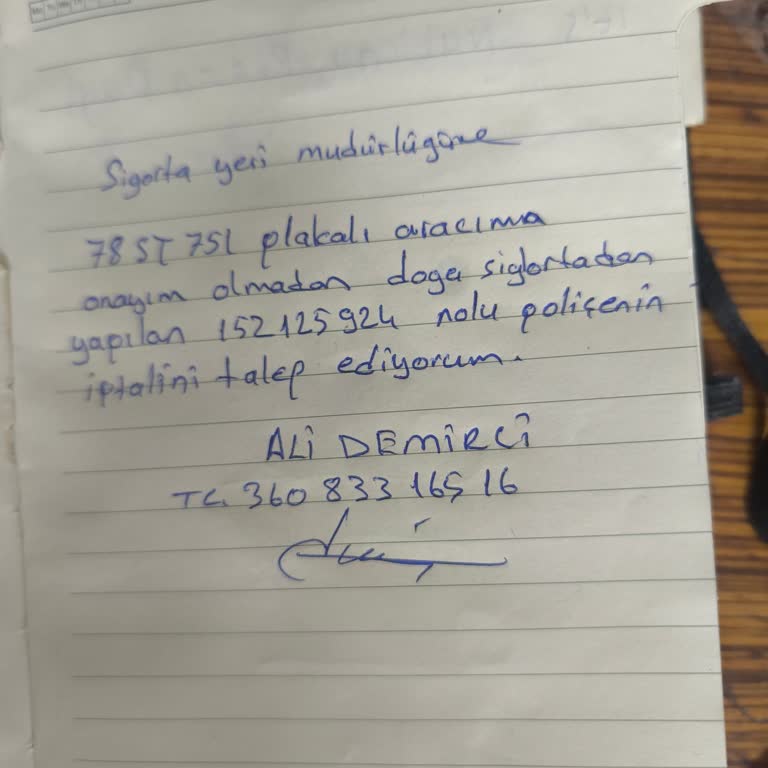 Sigorta yeri mudürlügüne
78 ST 751 plakalı aracıma
onayım olmadan doga sigłortadan
yapılan 152125924 nolu poliçenin
iptalini talep ediyorum.
ALİ DEMİRCİ
TC. 360 833 165 16